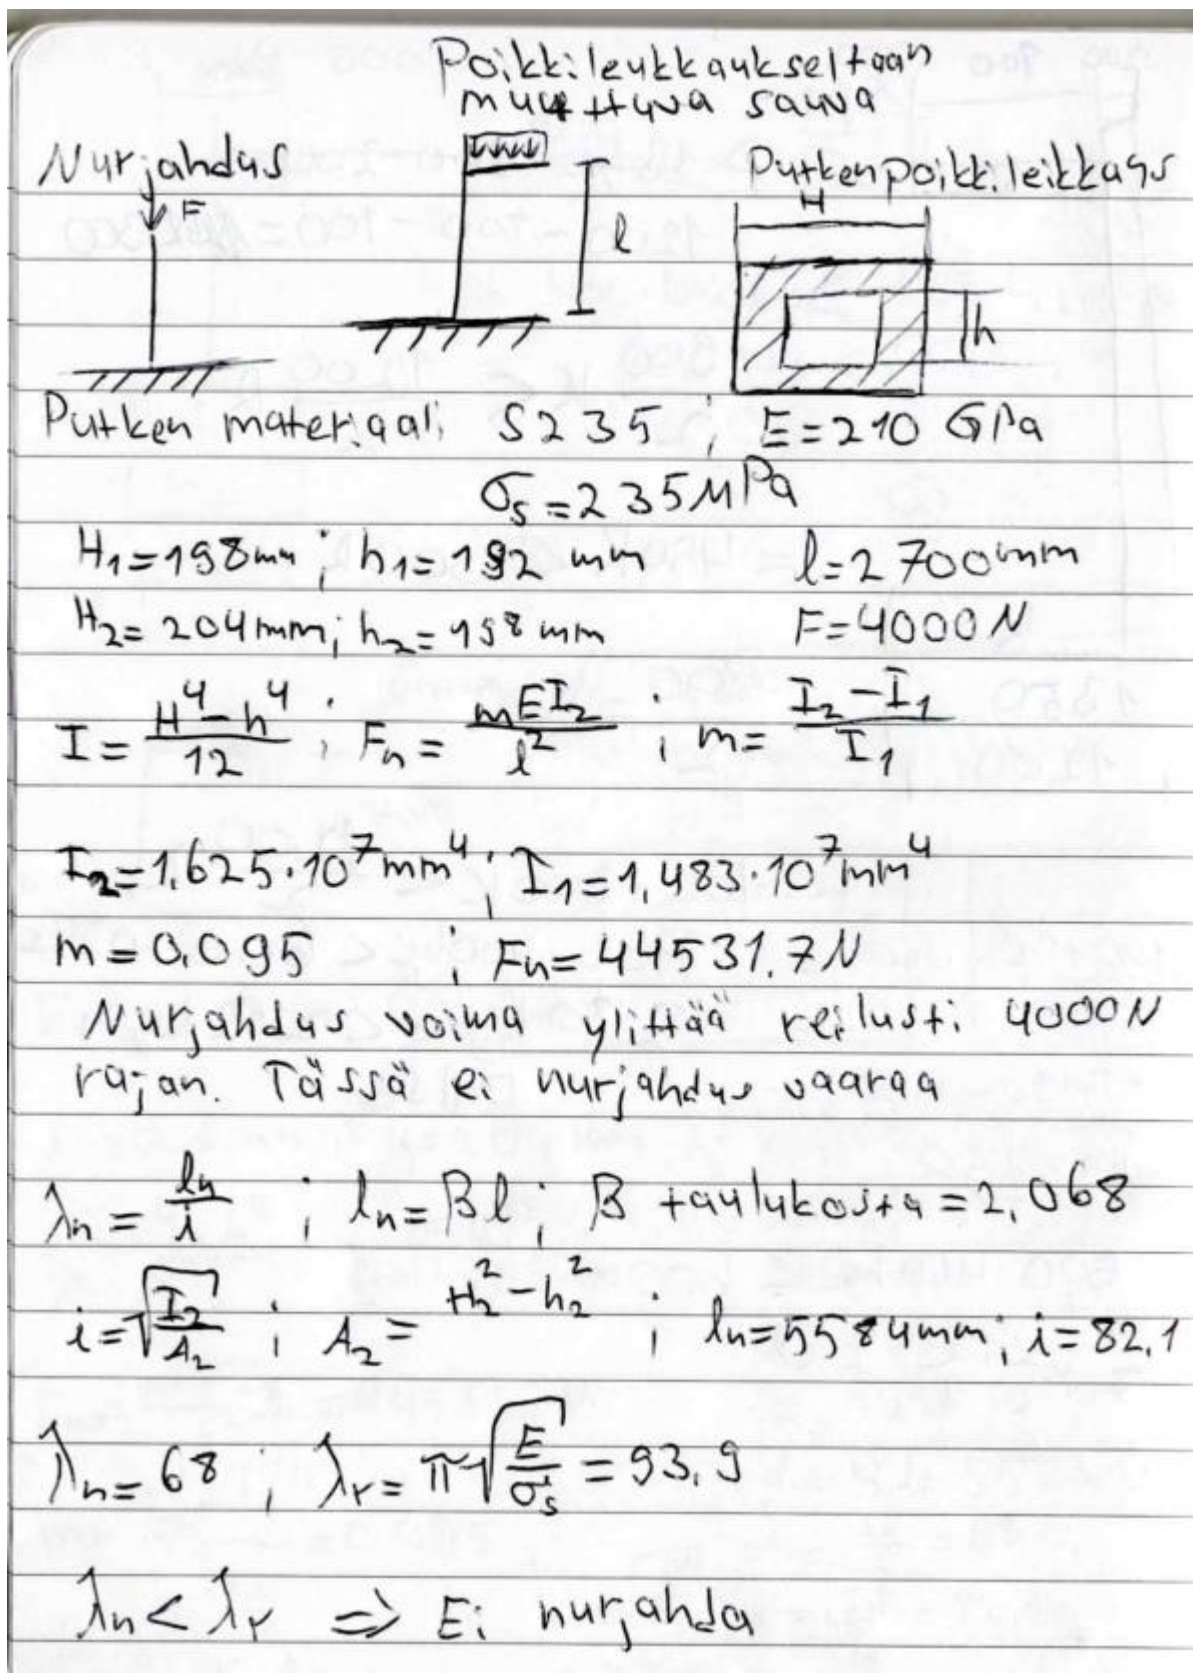 Poikkileukkaukseltaan
muuttuva sauva
Nurjahdus
Putken poikkileikkaus
F
l
H
h
Putken materjaali S235 ; E=210 GPa
σs=235MPa
H1=198mm ; h1=192 mm l=2700mm
H2=204mm; h2=198mm F=4000N
I= (H^4-h^4)/12 ; Fn= mEI2/l^2 ; m= (I2-I1)/I1
I2=1,625·10^7mm^4; I1=1,483·10^7mm^4
m=0,095 ; Fn=44531,7N
Nurjahdus voima ylittää reilusti 4000N
rajan. Tässä ei nurjahdus vaaraa
λn= ln/i ; ln=βl; β taulukosta=2,068
i=√(I2/A2) ; A2= H2^2-h2^2 ; ln=5584mm; i=82,1
λn=68 ; λr=π√(E/σs)=93,9
λn<λr ⇒ Ei nurjahda